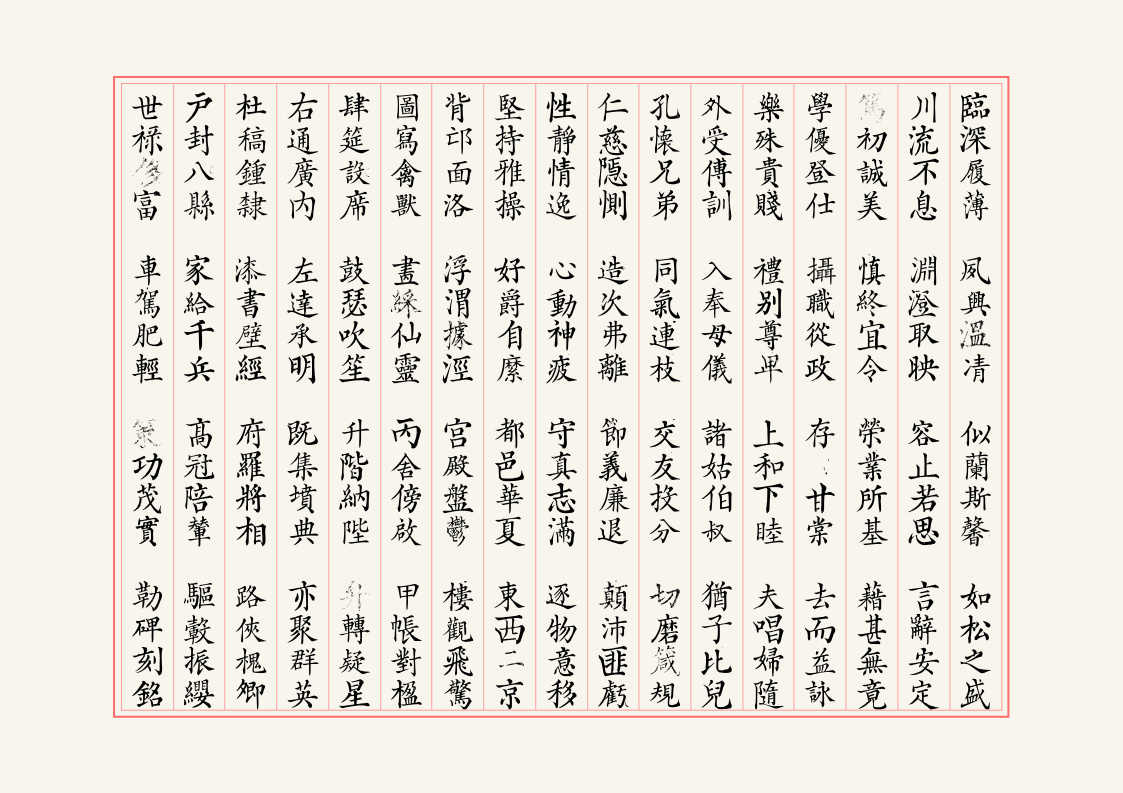 臨深履薄 夙興溫凊 似蘭斯馨 如松之盛
川流不息 淵澄取映 容止若思 言辭安定
篤初誠美 慎終宜令 榮業所基 藉甚無竟
學優登仕 攝職從政 存甘棠 去而益詠
樂殊貴賤 禮別尊卑 上和下睦 夫唱婦隨
外受傅訓 入奉母儀 諸姑伯叔 猶子比兒
孔懷兄弟 同氣連枝 交友投分 切磨箴規
仁慈隱惻 造次弗離 節義廉退 顛沛匪虧
性靜情逸 心動神疲 守真志滿 逐物意移
堅持雅操 好爵自縻 都邑華夏 東西二京
背邙面洛 浮渭據涇 宮殿盤鬱 樓觀飛驚
圖寫禽獸 畫綵仙靈 丙舍傍啟 甲帳對楹
肆筵設席 鼓瑟吹笙 升階納陛 弁轉疑星
右通廣內 左達承明 既集墳典 亦聚群英
杜稿鍾隸 漆書壁經 府羅將相 路俠槐卿
戶封八縣 家給千兵 高冠陪輦 驅轂振纓
世祿侈富 車駕肥輕 策功茂實 勒碑刻銘